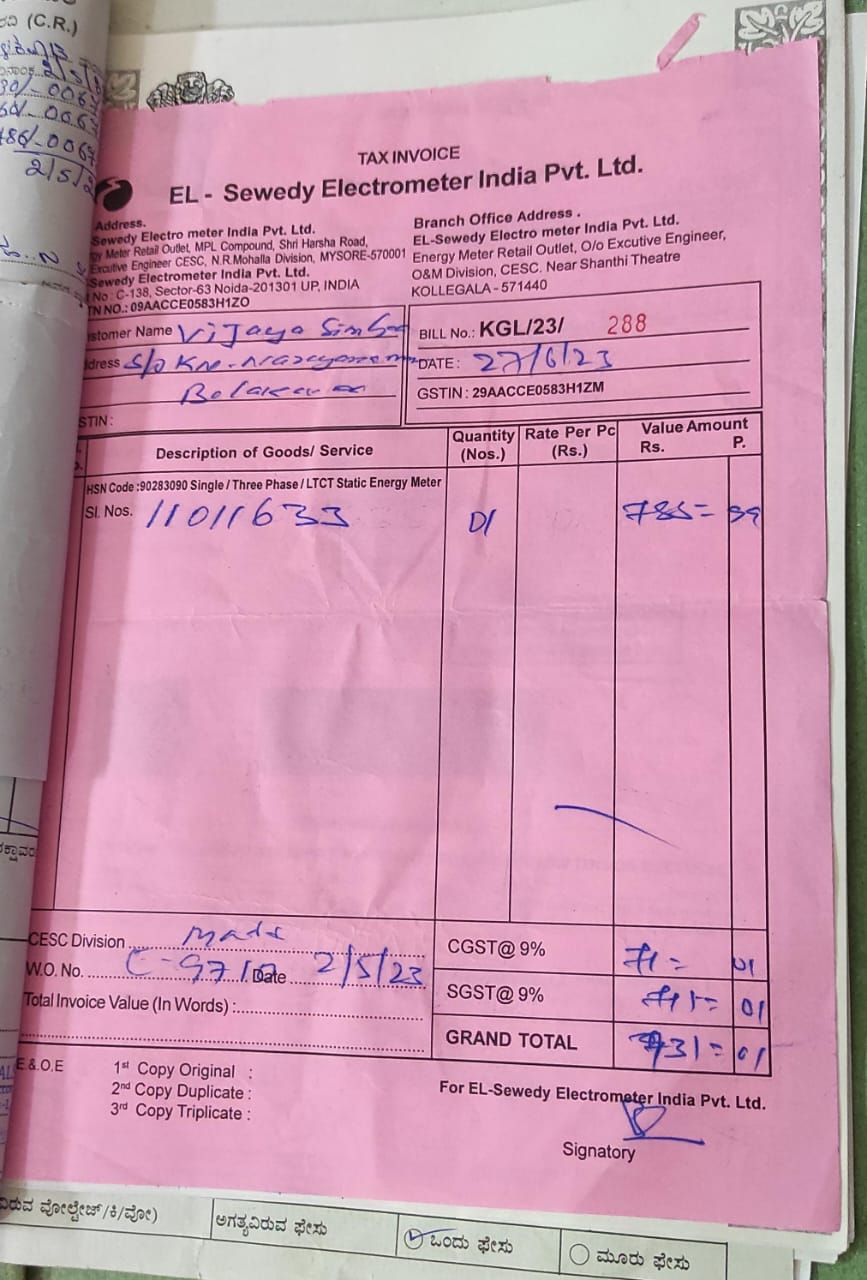 ದವಿ (C.R.)
2/5/2
TAX INVOICE
EL - Sewedy Electrometer India Pvt. Ltd.
Address.
Sewedy Electro meter India Pvt. Ltd.
gy Meter Retail Outlet, MPL Compound, Shri Harsha Road,
Excutive Engineer CESC, N.R.Mohalla Division, MYSORE-570001
Sewedy Electrometer India Pvt. Ltd.
No : C-138, Sector-63 Noida-201301 UP, INDIA
TN NO.: 09AACCE0583H1ZO
Branch Office Address .
EL-Sewedy Electro meter India Pvt. Ltd.
Energy Meter Retail Outlet, O/o Excutive Engineer,
O&M Division, CESC. Near Shanthi Theatre
KOLLEGALA - 571440
stomer Name Vijaya
dress S/o
STIN :
BILL No.: KGL/23/ 288
DATE : 27/6/23
GSTIN : 29AACCE0583H1ZM
Description of Goods/ Service Quantity (Nos.) Rate Per Pc (Rs.) Value Amount Rs. P.
HSN Code :90283090 Single / Three Phase / LTCT Static Energy Meter
Sl. Nos. 11011633 01 785=
CESC Division
W.O. No. Date 2/5/23
Total Invoice Value (In Words) :
CGST@ 9% 71= 01
SGST@ 9% 71= 01
GRAND TOTAL 931= 01
E &.O.E
1st Copy Original :
2nd Copy Duplicate :
3rd Copy Triplicate :
For EL-Sewedy Electrometer India Pvt. Ltd.
Signatory
ವಿರುವ ವೋಲ್ಟೇಜ್/ಕಿ/ವೋ)
ಅಗತ್ಯವಿರುವ ಫೇಸು
ಒಂದು ಫೇಸು
ಮೂರು ಫೇಸು